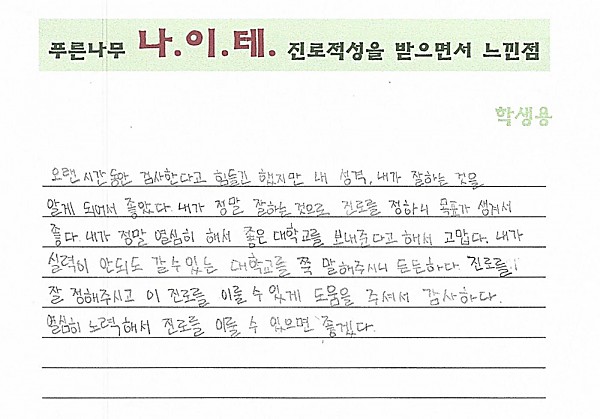 푸른나무 나.이.테. 진로적성을 받으면서 느낀점
학생용
오랜 시간동안 검사한다고 힘들긴 했지만 내 성격, 내가 잘하는 것을
알게 되어서 좋았다. 내가 정말 잘하는 것으로 진로를 정하니 목표가 생겨서
좋다. 내가 정말 열심히 해서 좋은 대학교를 보내준다고 해서 고맙다. 내가
실력이 안되도 갈수있는 대학교를 쭉 말해주시니 든든하다. 진로를
잘 정해주시고 이 진로를 이룰 수 있게 도움을 주셔서 감사하다.
열심히 노력해서 진로를 이룰 수 있으면 좋겠다.